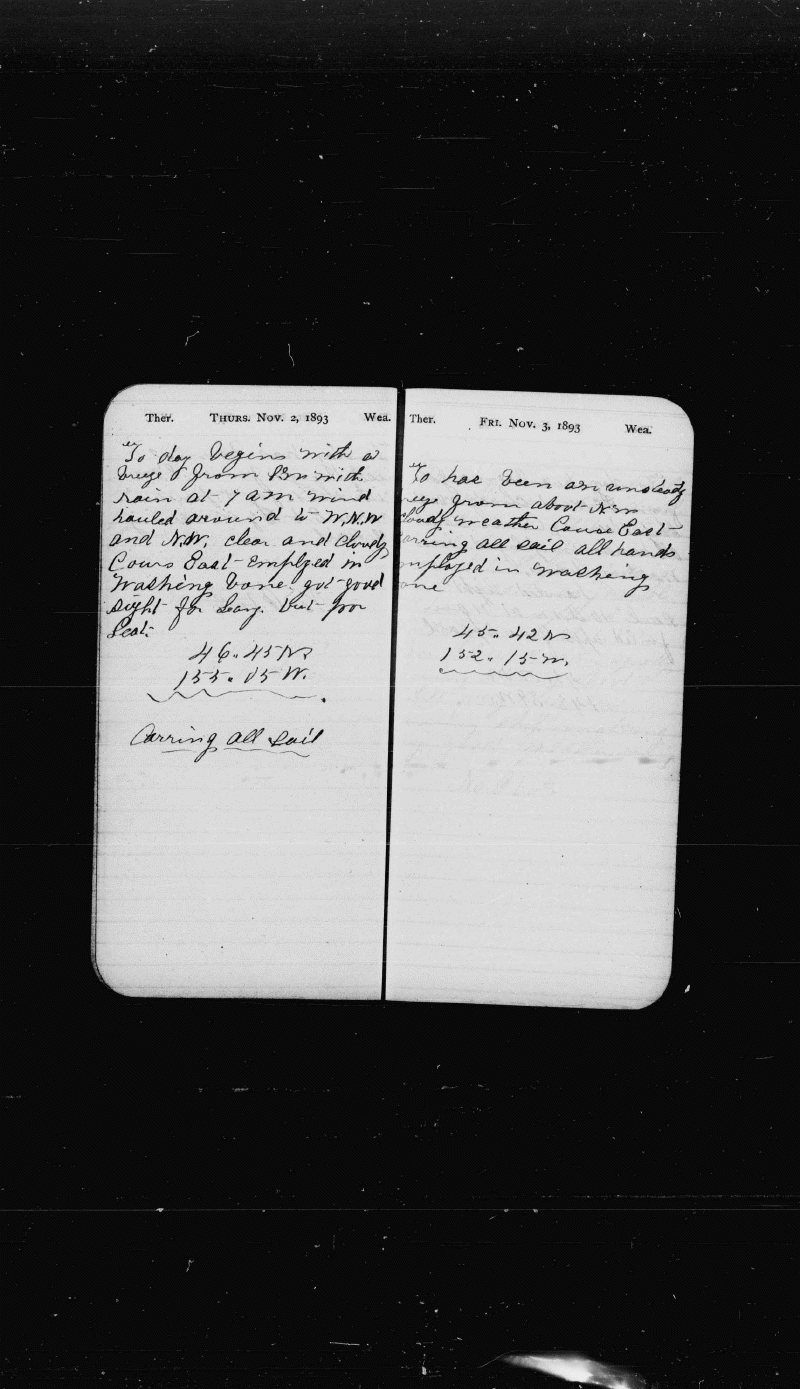 Ther. Thurs. Nov. 2, 1893 Wea.
To day begins with a
breze from with
rain at 7 am wind
hauled around to W.N.W
and N.W. clear and cloudy
Cours East Emplyed in
Washing bone. got good
sight for Long. but poor
Lat.
46. 45 N
155. 05 W.
Carring all sail
Ther. Fri. Nov. 3, 1893 Wea.
To has been an unsteady
reeze from about
cloudy weather Couse East
carring all sail all hands
mployed in washing
one
45. 42 N
152. 15 W.